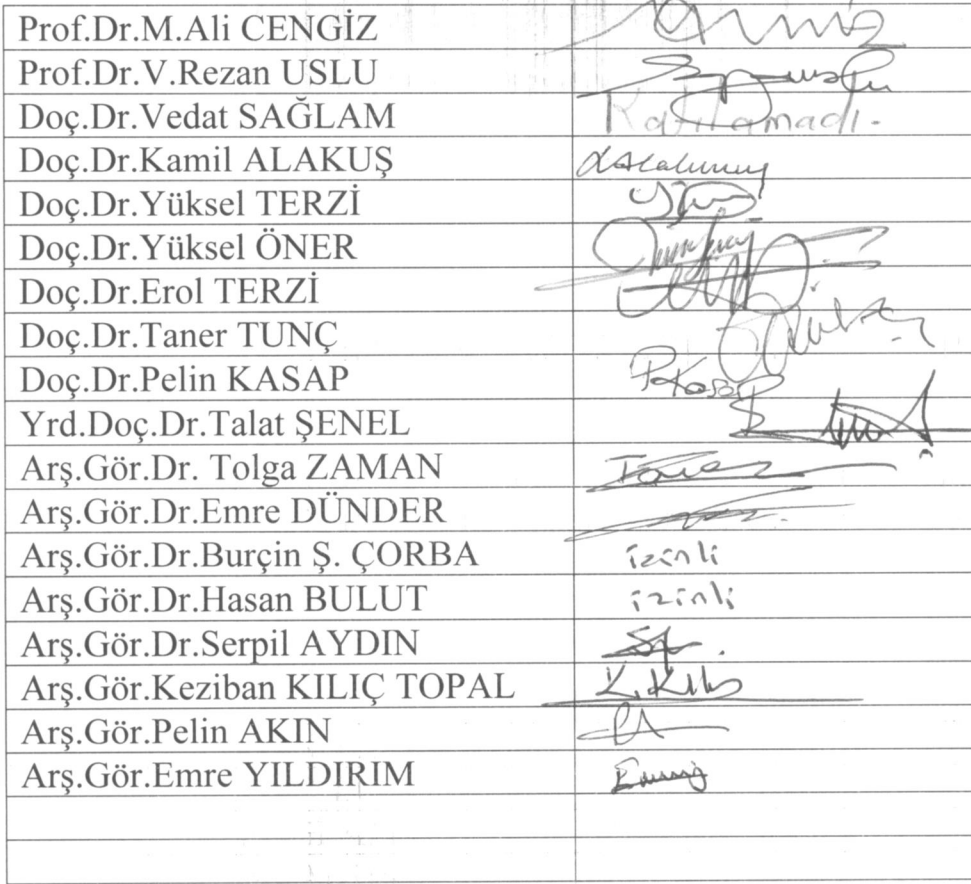 Prof.Dr.M.Ali CENGİZ
Prof.Dr.V.Rezan USLU
Doç.Dr.Vedat SAĞLAM Katılamadı.
Doç.Dr.Kamil ALAKUŞ
Doç.Dr.Yüksel TERZİ
Doç.Dr.Yüksel ÖNER
Doç.Dr.Erol TERZİ
Doç.Dr.Taner TUNÇ
Doç.Dr.Pelin KASAP P.Kasap
Yrd.Doç.Dr.Talat ŞENEL
Arş.Gör.Dr. Tolga ZAMAN
Arş.Gör.Dr.Emre DÜNDER
Arş.Gör.Dr.Burçin Ş. ÇORBA izinli
Arş.Gör.Dr.Hasan BULUT izinli
Arş.Gör.Dr.Serpil AYDIN
Arş.Gör.Keziban KILIÇ TOPAL
Arş.Gör.Pelin AKIN
Arş.Gör.Emre YILDIRIM